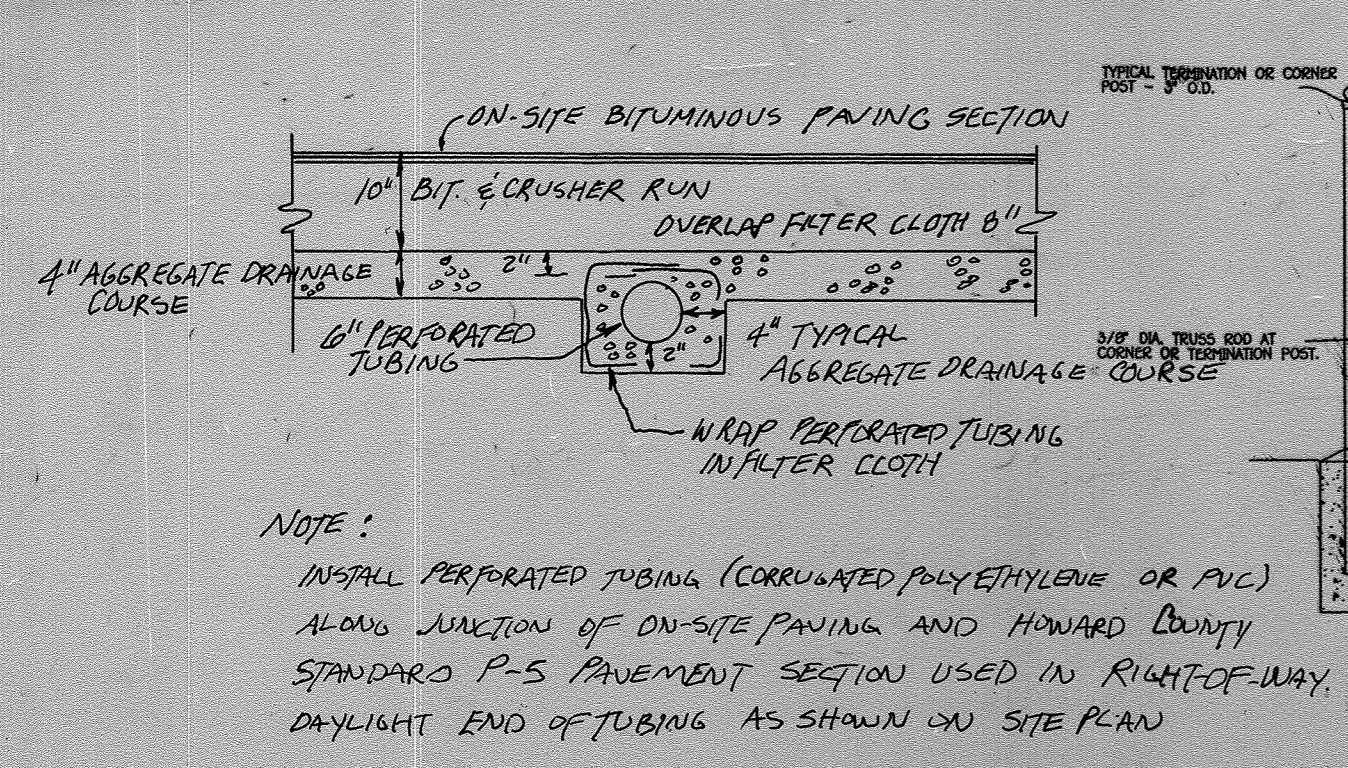 TYPICAL TERMINATION OR CORNER
POST - 3" O.D.
ON-SITE BITUMINOUS PAVING SECTION
10" BIT. & CRUSHER RUN
OVERLAP FILTER CLOTH 8"
4" AGGREGATE DRAINAGE
COURSE
2"
6" PERFORATED
TUBING
2"
4" TYPICAL
AGGREGATE DRAINAGE COURSE
3/8" DIA. TRUSS ROD AT
CORNER OR TERMINATION POST.
WRAP PERFORATED TUBING
IN FILTER CLOTH
NOTE:
INSTALL PERFORATED TUBING (CORRUGATED POLYETHYLENE OR PVC)
ALONG JUNCTION OF ON-SITE PAVING AND HOWARD COUNTY
STANDARD P-5 PAVEMENT SECTION USED IN RIGHT-OF-WAY.
DAYLIGHT END OF TUBING AS SHOWN ON SITE PLAN